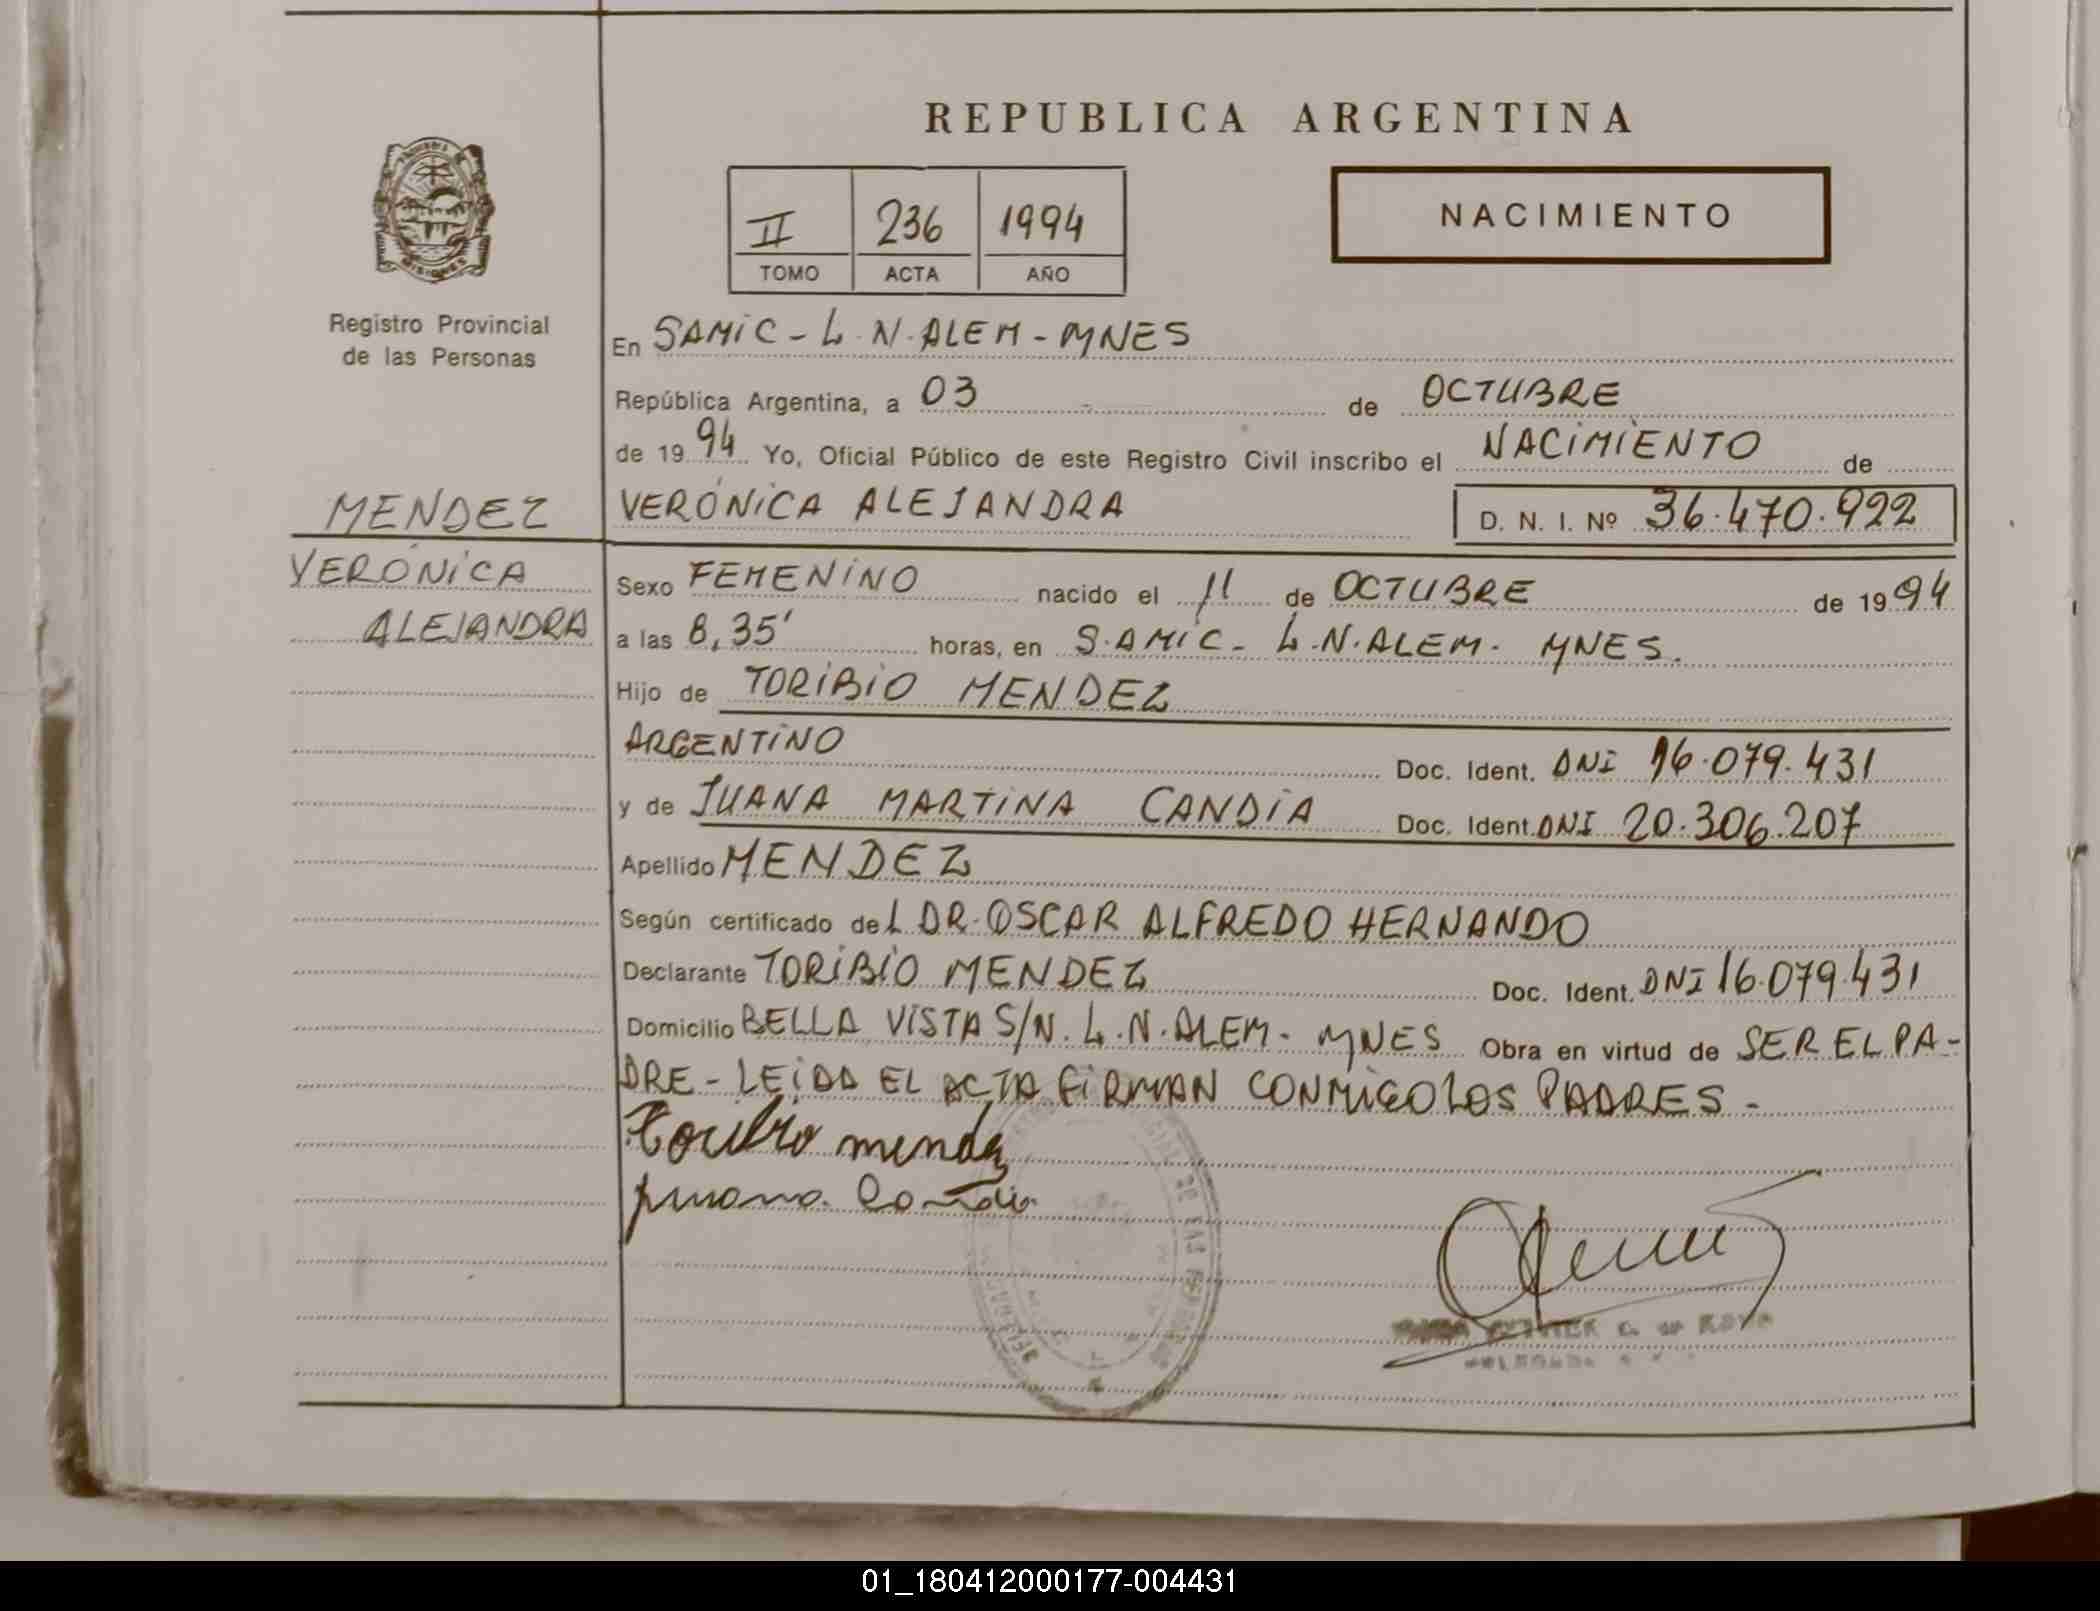 REPUBLICA ARGENTINA
II 236 1994
TOMO ACTA AÑO
NACIMIENTO
MISIONES
Registro Provincial
de las Personas
MENDEZ
VERÓNICA
ALEJANDRA
En SAMIC - L.N.ALEM - MNES
República Argentina, a 03 de OCTUBRE
de 1994 Yo, Oficial Público de este Registro Civil inscribo el NACIMIENTO de
VERÓNICA ALEJANDRA D. N. I. Nº 36.470.922
Sexo FEMENINO nacido el 11 de OCTUBRE de 1994
a las 8,35' horas, en S.AMIC - L.N.ALEM. MNES.
Hijo de TORIBIO MENDEZ
ARGENTINO Doc. Ident. DNI 16.079.431
y de JUANA MARTINA CANDIA Doc. Ident. DNI 20.306.207
Apellido MENDEZ
Según certificado deL DR. OSCAR ALFREDO HERNANDO
Declarante TORIBIO MENDEZ Doc. Ident. DNI 16.079.431
Domicilio BELLA VISTA S/N. L.N.ALEM - MNES Obra en virtud de SER EL PA-
DRE - LEIDA EL ACTA FIRMAN CONMIGO LOS PADRES -
Toribio mendez
juana Candia
01_180412000177-004431